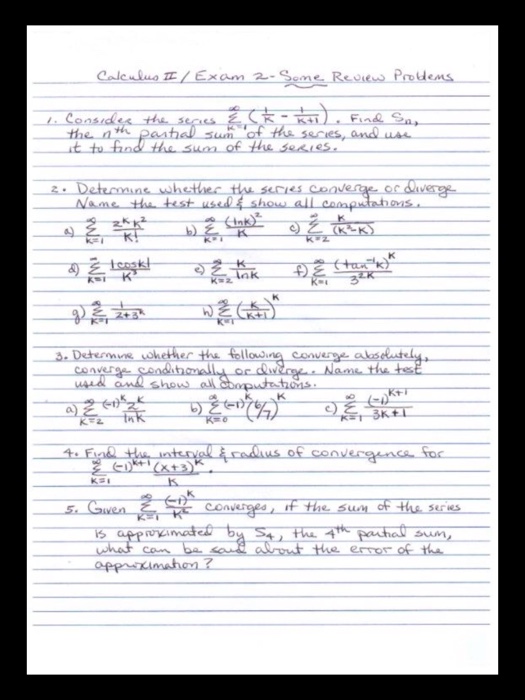 Calculus II / Exam 2 - Some Review Problems
1. Consider the series ∞ Σ k=1 (1/k - 1/(k+1)). Find Sn,
the nth partial sum of the series, and use
it to find the sum of the series.
2. Determine whether the series converge or diverge
Name the test used & show all computations.
a) ∞ Σ k=1 2^k k^2 / k! b) ∞ Σ k=1 (ln k)^2 / k c) ∞ Σ k=2 k / (k^2-k)
d) ∞ Σ k=1 |cos k| / k^3 e) ∞ Σ k=2 k / ln k f) ∞ Σ k=1 (tan^-1 k)^k / 3^2k
g) ∞ Σ k=1 1 / (2+3^k) h) ∞ Σ k=1 (k/(k+1))^k
3. Determine whether the following converge absolutely,
converge conditionally or diverge. Name the test
used and show all computations.
a) ∞ Σ k=2 (-1)^k 2^k / ln k b) ∞ Σ k=0 (-1)^k (6/7)^k c) ∞ Σ k=1 (-1)^k+1 / (3k+1)
4. Find the interval & radius of convergence for
∞ Σ k=1 (-1)^k+1 (x+3)^k / k.
5. Given ∞ Σ k=1 (-1)^k / k^2 converges, if the sum of the series
is approximated by S4, the 4th partial sum,
what can be said about the error of the
approximation?